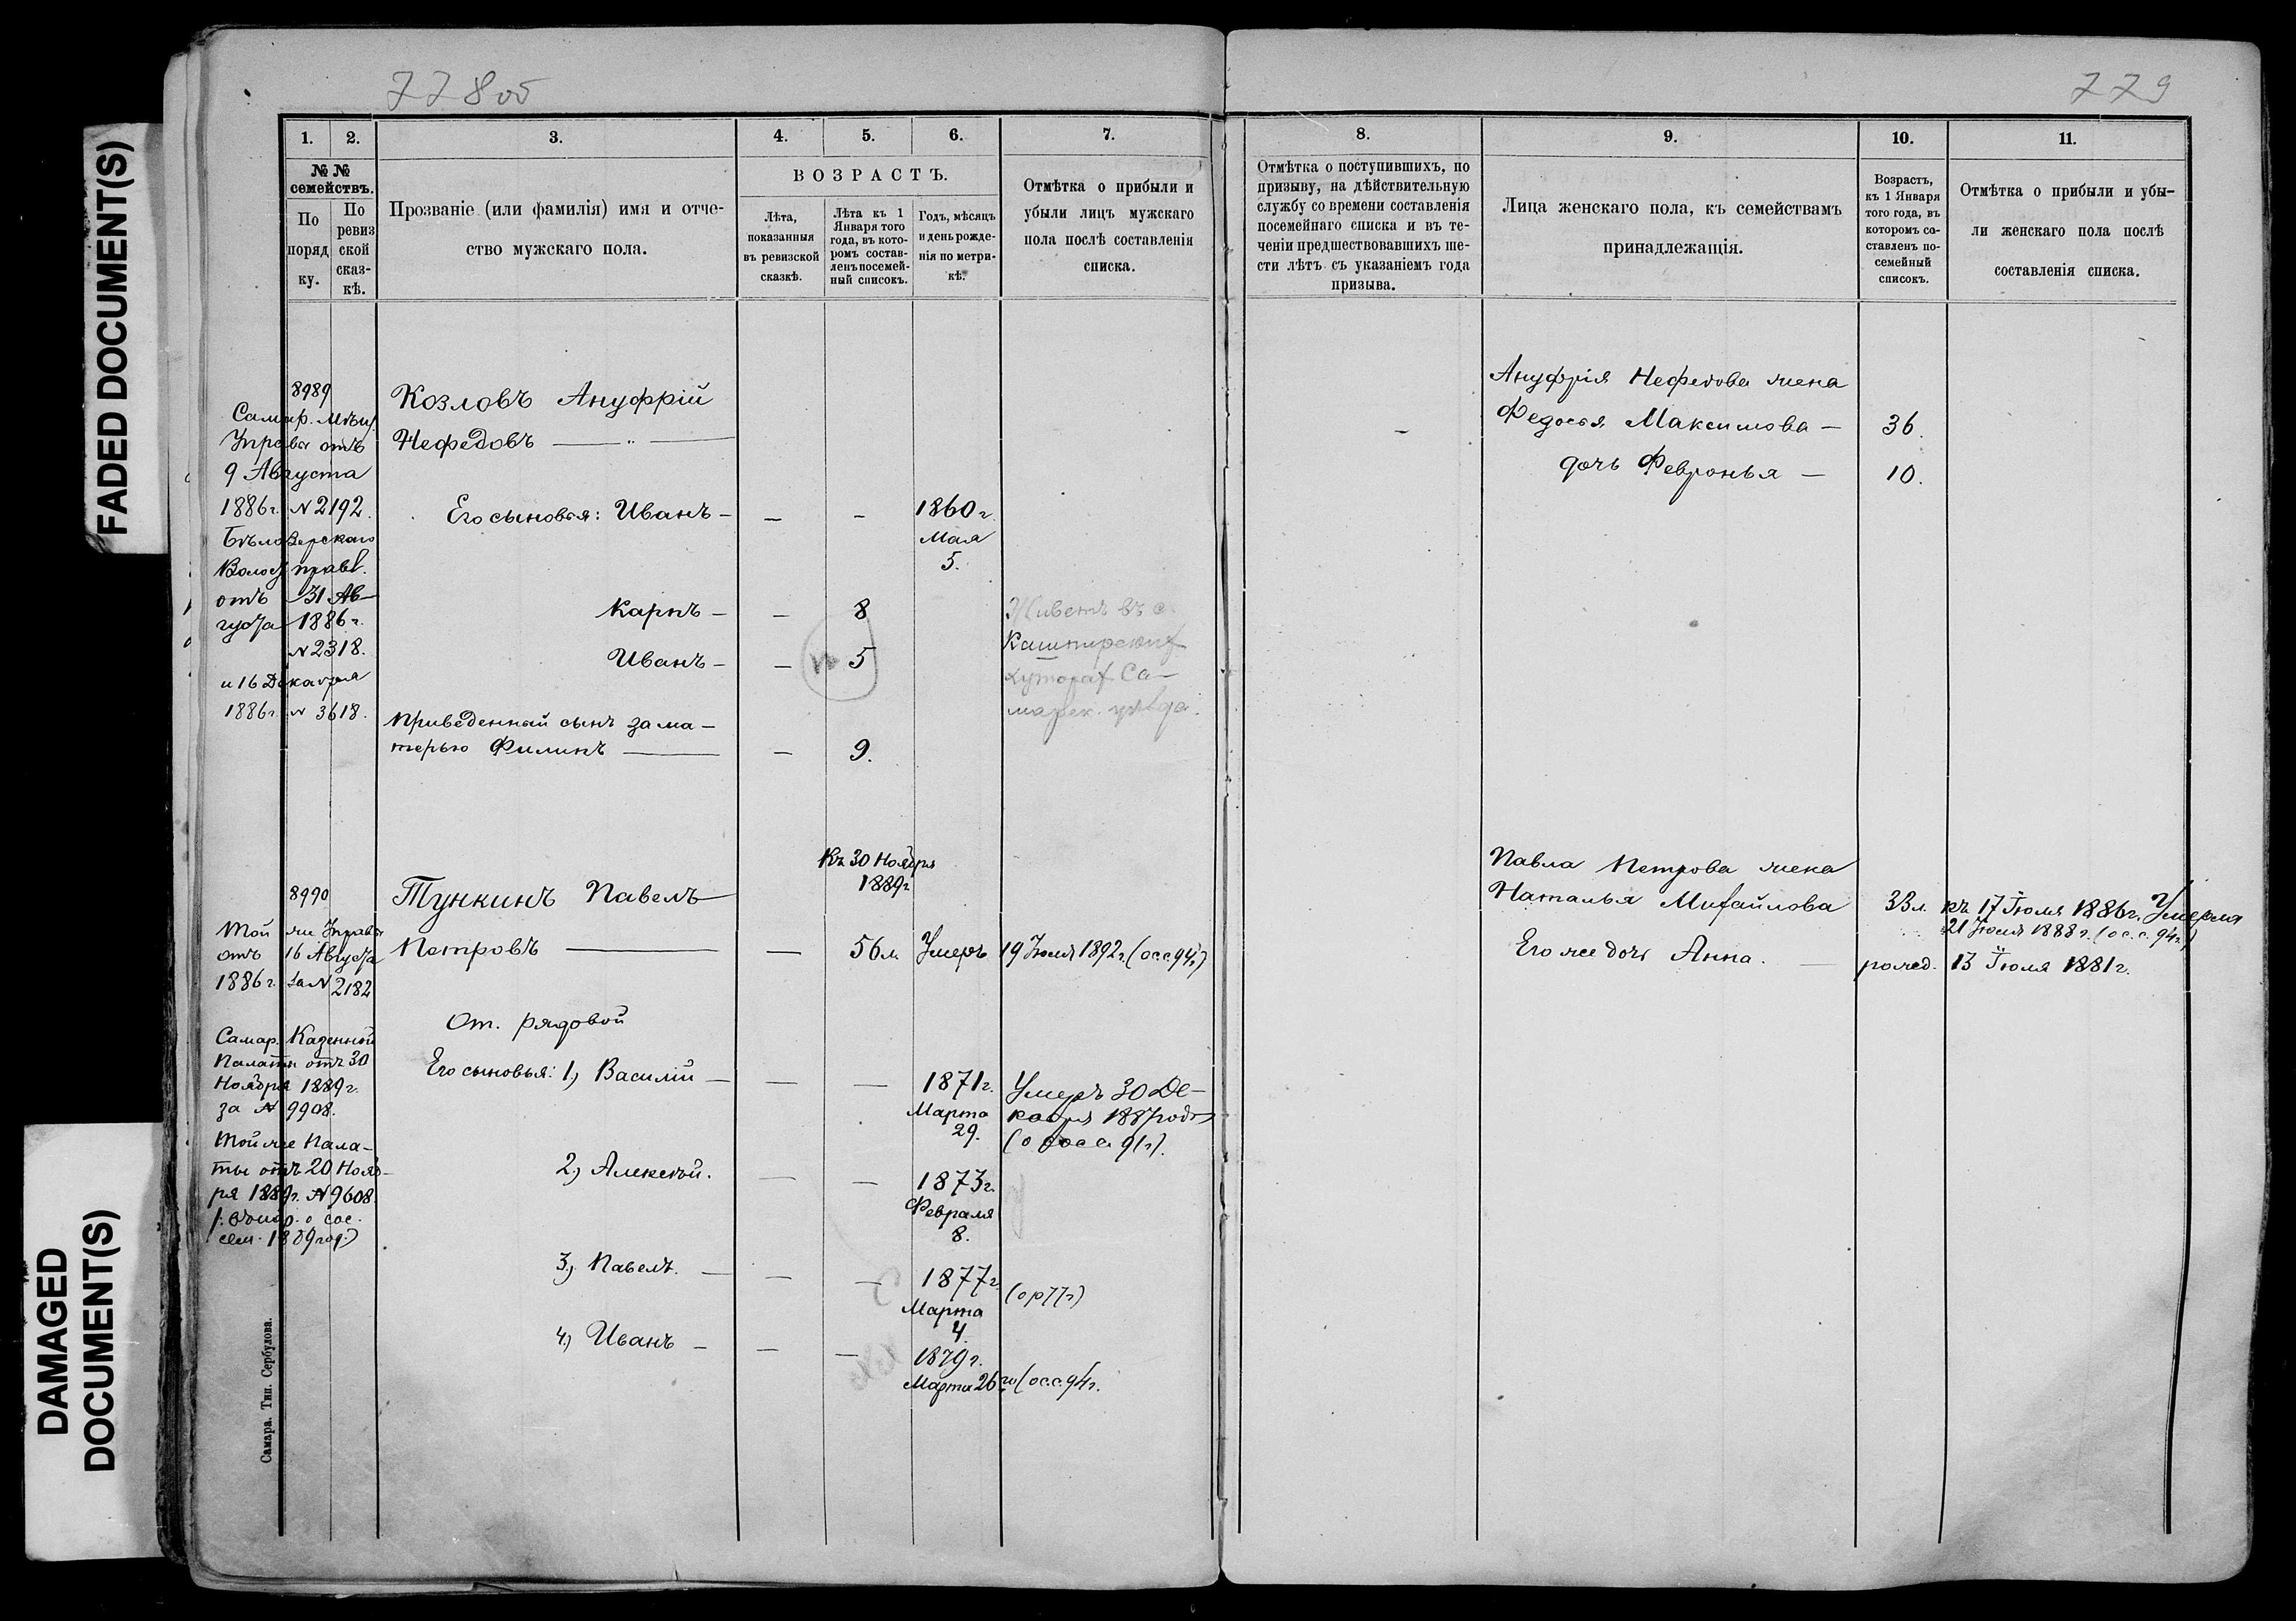 FADED DOCUMENT(S)
DAMAGED
DOCUMENT(S)
778 об
779
1.
2.
3.
4.
5.
6.
7.
№ №
семействъ.
По
поряд
ку.
По
ревиз
ской
сказ-
кѣ.
Прозваніе (или фамилія) имя и отче-
ство мужскаго пола.
ВОЗРАСТЪ.
Лѣта,
показанныя
въ ревизской
сказкѣ.
Лѣта къ 1
Января того
года, въ кото-
ромъ состав-
ленъ посемей-
ный списокъ.
Годъ, мѣсяцъ
и день рожде-
нія по метри-
кѣ.
Отмѣтка о прибыли и
убыли лицъ мужскаго
пола послѣ составленія
списка.
8.
9.
10.
11.
Отмѣтка о поступившихъ, по
призыву, на дѣйствительную
службу со времени составленія
посемейнаго списка и въ те-
ченіи предшествовавшихъ ше-
сти лѣтъ съ указаніемъ года
призыва.
Лица женскаго пола, къ семействамъ
принадлежащія.
Возрастъ,
къ 1 Января
того года, въ
которомъ со-
ставленъ по-
семейный
списокъ.
Отмѣтка о прибыли и убы-
ли женскаго пола послѣ
составленія списка.
8989
Самар. Мѣщ.
Управы отъ
9 Августа
1886 г. № 2192.
Бѣлозерскаго
Волост правл.
отъ 31 Ав-
густа 1886 г.
№ 2318.
и 16 Декабря
1886 г. № 3618.
Козловъ Ануфрій
Нефедовъ — „ —
Его сыновья: Иванъ — — — 1860 г.
Мая
5.
Карпъ — — 8
Иванъ — — 5
Приведенный сынъ за ма-
терью Филипъ — — 9.
Живетъ въ с.
Кашпирских
хуторах Са-
марск. уѣзда.
Ануфрія Нефедова жена
Федосья Максимова — 36.
дочь Февронья — 10.
Къ 30 Ноября
1889 г.
8990
Той же Управы
отъ 16 Августа
1886 г. за № 2182
Самар. Казенной
Палаты отъ 30
Ноября 1889 г.
за № 9908.
Той же Пала-
ты отъ 20 Нояб-
ря 1889 г. № 9608
Тункинъ Павелъ —
Петровъ — — 56 л. Умеръ 19 Іюля 1892 г. (о с.с. 94 г.)
От. рядовой
Его сыновья: 1.) Василій — — — 1871 г.
Марта
29.
Умеръ 30 Де-
кабря 1887 года
2.) Алексѣй. — — 1873 г.
Февраля
8.
3.) Павелъ. — — — 1877 г.
Марта
4.
(о р 77 г)
4.) Иванъ — — — 1879 г.
Марта 26 го (о с.с. 94 г.
Павла Петрова жена
Наталья Михайлова 33 л. къ 17 Іюля 1886 г. Умерла
21 Іюля 1888 г. (о с.с. 94 г.)
Его же дочь Анна. — рожд. 13 Іюля 1881 г.
Самара. Тип. Сербулова.